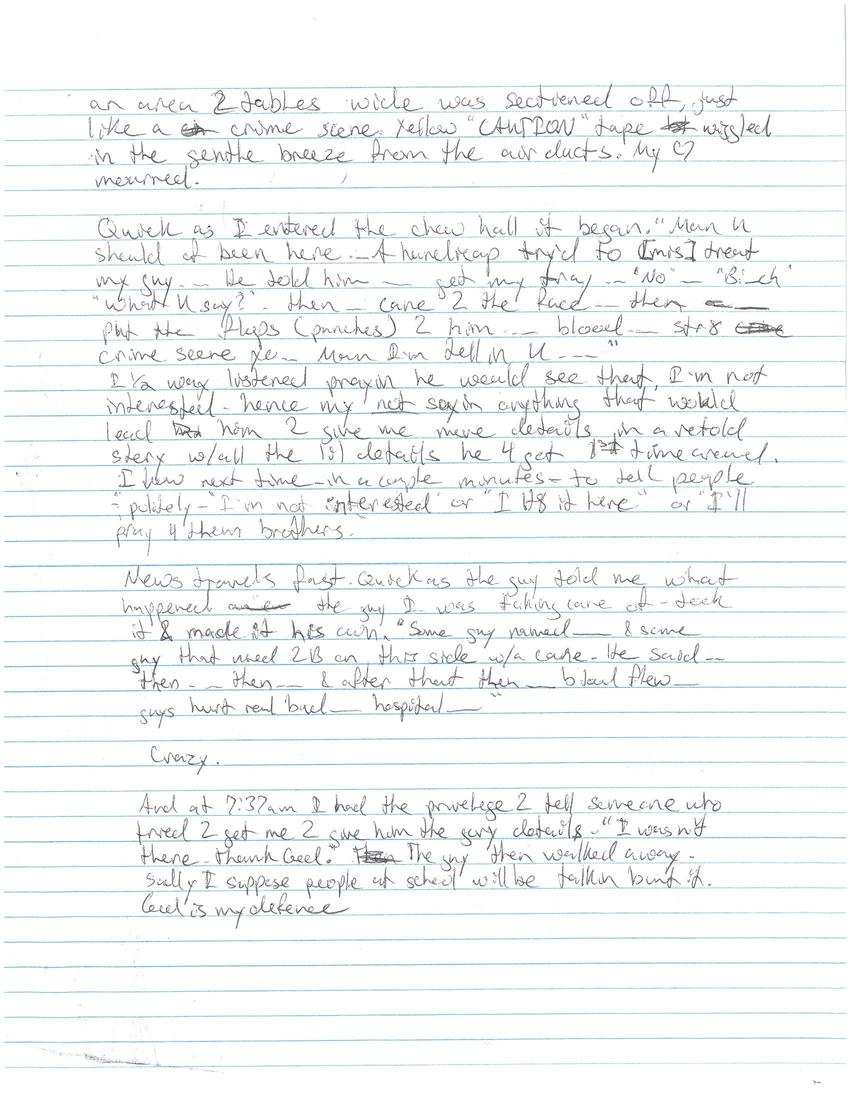 an area 2 tables wide was sectioned off, just
like a crime scene. Yellow "CAUTION" tape wiggled
in the genthe breeze from the air ducts. My ♡
mourned.
Quick as I entered the chow hall it began. "Man U
should of been here -- A handicap try'd to [mis] treat
my guy -- He told him -- get my tray -- "No" -- "B--ch"
"What U say?" - then -- cane 2 the face -- then -- --
put the flups (punches) 2 him --- blood --- str8
crime scene yo -- Man I'm tellin U --- "
I 1/2 way listened prayin he would see that, I'm not
interested - hence my not sayin anything that would
lead him 2 give me more details in a retold
story w/all the lil details he 4get 1st time around.
I how next time - in a couple minutes - to tell people
- politely - "I'm not interested" or "I H8 it here" or "I'll
pray 4 them brothers."
News travels fast. Quick as the guy told me what
happened the guy I was taking care of - took
it & made it his own. "Some guy named --- & some
guy that used 2B on this side w/a cane - He said --
then - -- then --- & after that then --- blood flew --
guys hurt real bad --- hospital --- "
Crazy.
And at 7:37am I had the privelege 2 tell someone who
tried 2 get me 2 give him the gory details - "I wasn't
there - thank God." The guy then walked away -
Sadly I suppose people at school will be talkin bout it.
God is my defence